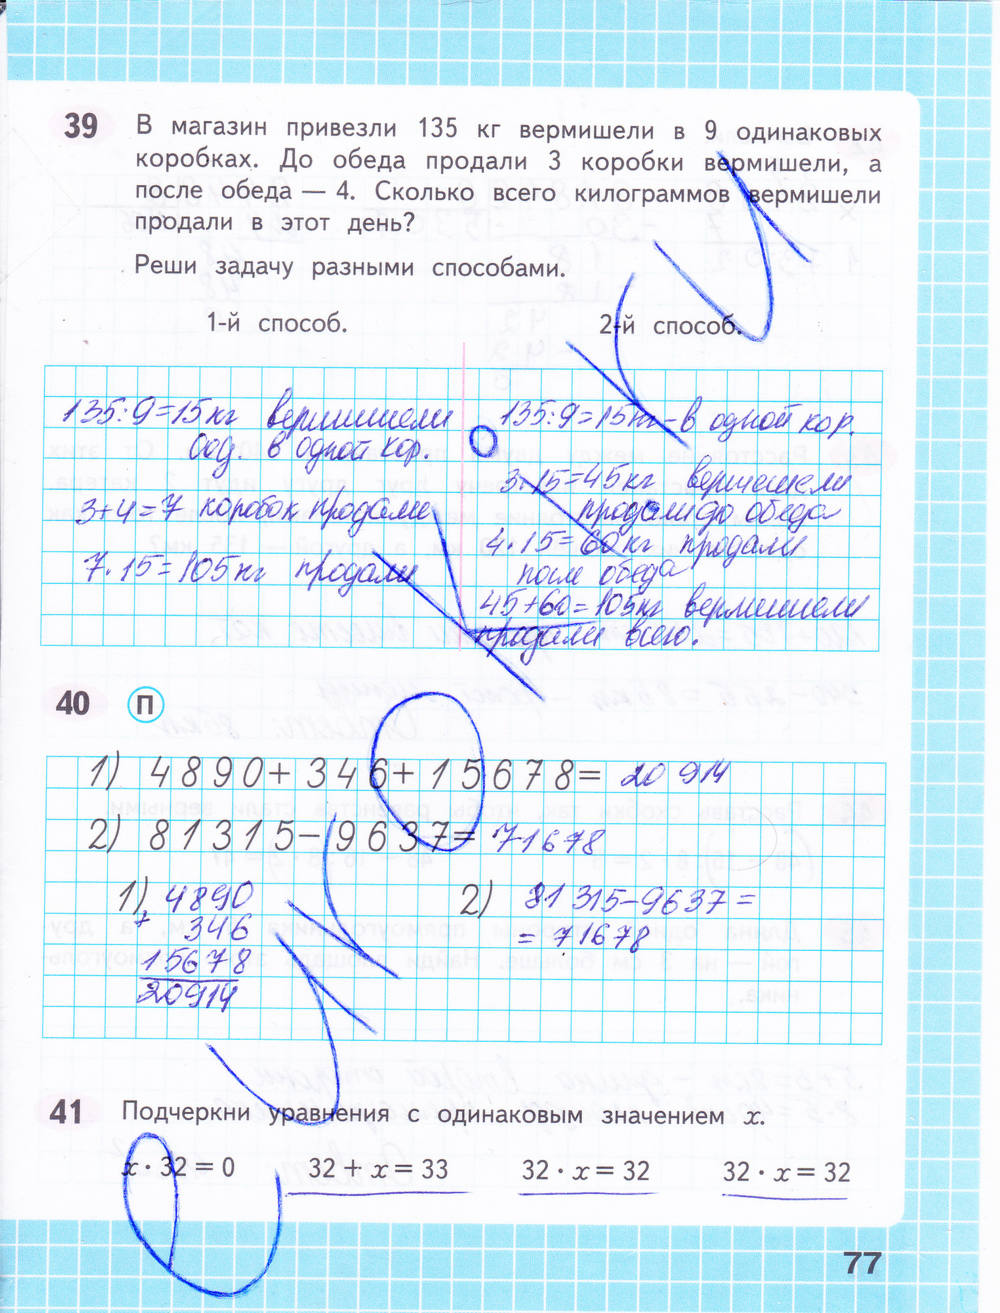 39 В магазин привезли 135 кг вермишели в 9 одинаковых
коробках. До обеда продали 3 коробки вермишели, а
после обеда — 4. Сколько всего килограммов вермишели
продали в этот день?
Реши задачу разными способами.
1-й способ.
135:9=15кг вермишели
сод. в одной кор.
3+4=7 коробок продали
7·15=105кг продали
2-й способ.
135:9=15кг-в одной кор.
3·15=45кг вермишели
продали до обеда
4·15=60кг продали
после обеда
45+60=105кг вермишели
продали всего.
40 П
1) 4890+346+15678= 20 914
2) 81315-9637= 71678
1) 4890
+ 346
15678
20914
2) 81 315-9637=
= 71678
41 Подчеркни уравнения с одинаковым значением x.
x · 32 = 0 32 + x = 33 32 · x = 32 32 · x = 32
77